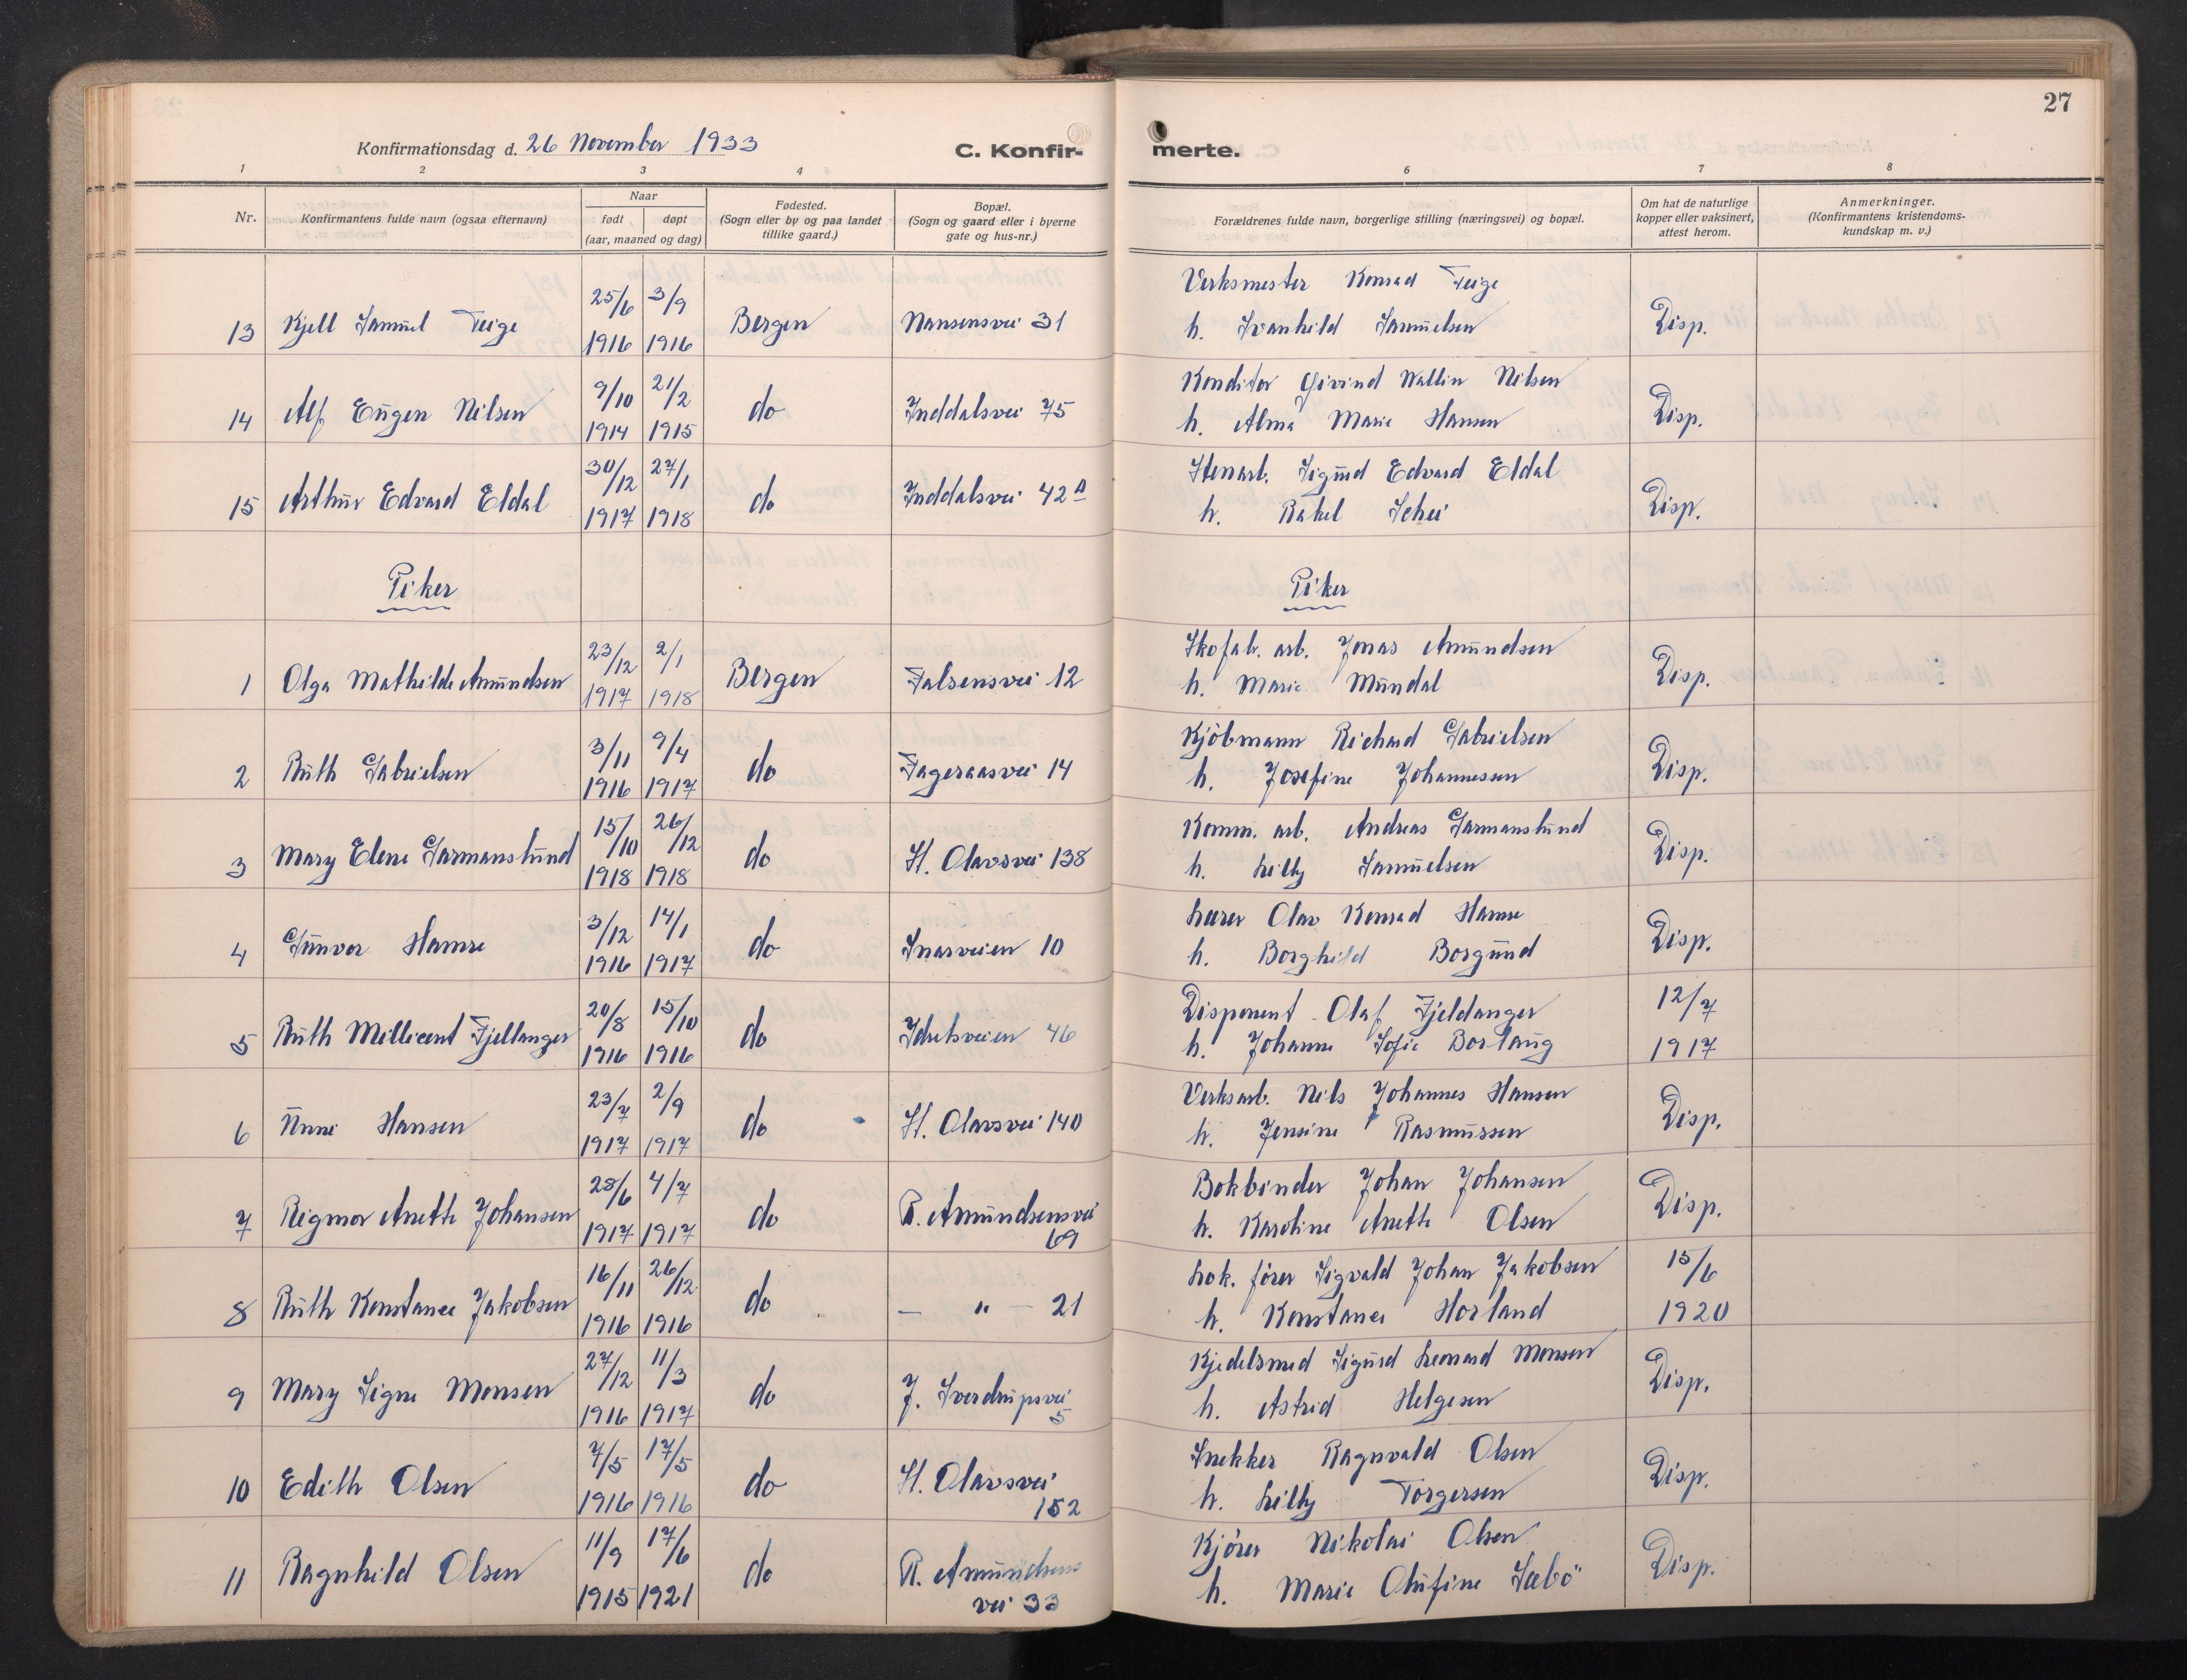 27
Konfirmationsdag d. 26 November 1933
C. Konfir-
merte.
1 2 3 4 6 7 8
Nr.
Konfirmantens fulde navn (ogsaa efternavn)
Naar
født døpt
(aar, maaned og dag)
Fødested.
(Sogn eller by og paa landet
tillike gaard.)
Bopæl.
(Sogn og gaard eller i byerne
gate og hus-nr.)
Forældrenes fulde navn, borgerlige stilling (næringsvei) og bopæl.
Om hat de naturlige
kopper eller vaksinert,
attest herom.
Anmerkninger.
(Konfirmantens kristendoms-
kundskap m. v.)
25/6 3/9 Verksmester Konrad Teige
13 Kjell Samuel Teige 1916 1916 Bergen Nansensvei 31 h. Svanhild Samuelsen Disp.
9/10 21/2 Konditor Øivind Wallin Nilsen
14 Alf Eugen Nilsen 1914 1915 do Inddalsvei 75 h. Alma Marie Hansen Disp.
30/12 27/1 Stenarb. Sigurd Edvard Eldal
15 Arthur Edvard Eldal 1917 1918 do Inddalsvei 42 A h. Rakel Schei Disp.
Piker Piker
23/12 2/1 Skofab. arb. Jonas Amundsen
1 Olga Mathilde Amundsen 1917 1918 Bergen Falsensvei 12 h. Marie Mundal Disp.
3/11 9/4 Kjöbmann Richard Gabrielsen
2 Ruth Gabrielsen 1916 1917 do Fageraasvei 14 h. Josefine Johannessen Disp.
15/10 26/12 Komm. arb. Andreas Garmanslund
3 Mary Elene Garmanslund 1918 1918 do St. Olavsvei 138 h. Lilly Samuelsen Disp.
3/12 14/1 Lærer Olav Konrad Hamre
4 Gunvor Hamre 1916 1917 do Snarveien 10 h. Borghild Borgund Disp.
20/8 15/10 Disponent Olaf Fjeldanger 12/7
5 Ruth Millicent Fjellanger 1916 1916 do Idretsveien 46 h. Johanne Sofie Borlaug 1917
23/7 2/9 Verksarb. Nils Johannes Hansen
6 Unni Hansen 1917 1917 do St. Olavsvei 140 h. Jensine Rasmussen Disp.
28/6 4/7 Bokbinder Johan Johansen
7 Rigmor Anette Johansen 1917 1917 do R. Amundsensvei 69 h. Karoline Anette Olsen Disp.
16/11 26/12 Lok. förer Sigvald Johan Jakobsen 15/6
8 Ruth Konstance Jakobsen 1916 1916 do — " — 21 h. Konstance Horland 1920
27/12 11/3 Kjedelsmed Sigurd Leonard Monsen
9 Mary Signe Monsen 1916 1917 do J. Sverdrupsvei 5 h. Astrid Helgesen Disp.
7/5 17/5 Snekker Ragnvald Olsen
10 Edith Olsen 1916 1916 do St. Olavsvei 152 h. Lilly Torgersen Disp.
11/9 17/6 Kjörer Nikolai Olsen
11 Ragnhild Olsen 1915 1921 do R. Amundsens vei 33 h. Marie Olufine Sæbö Disp.